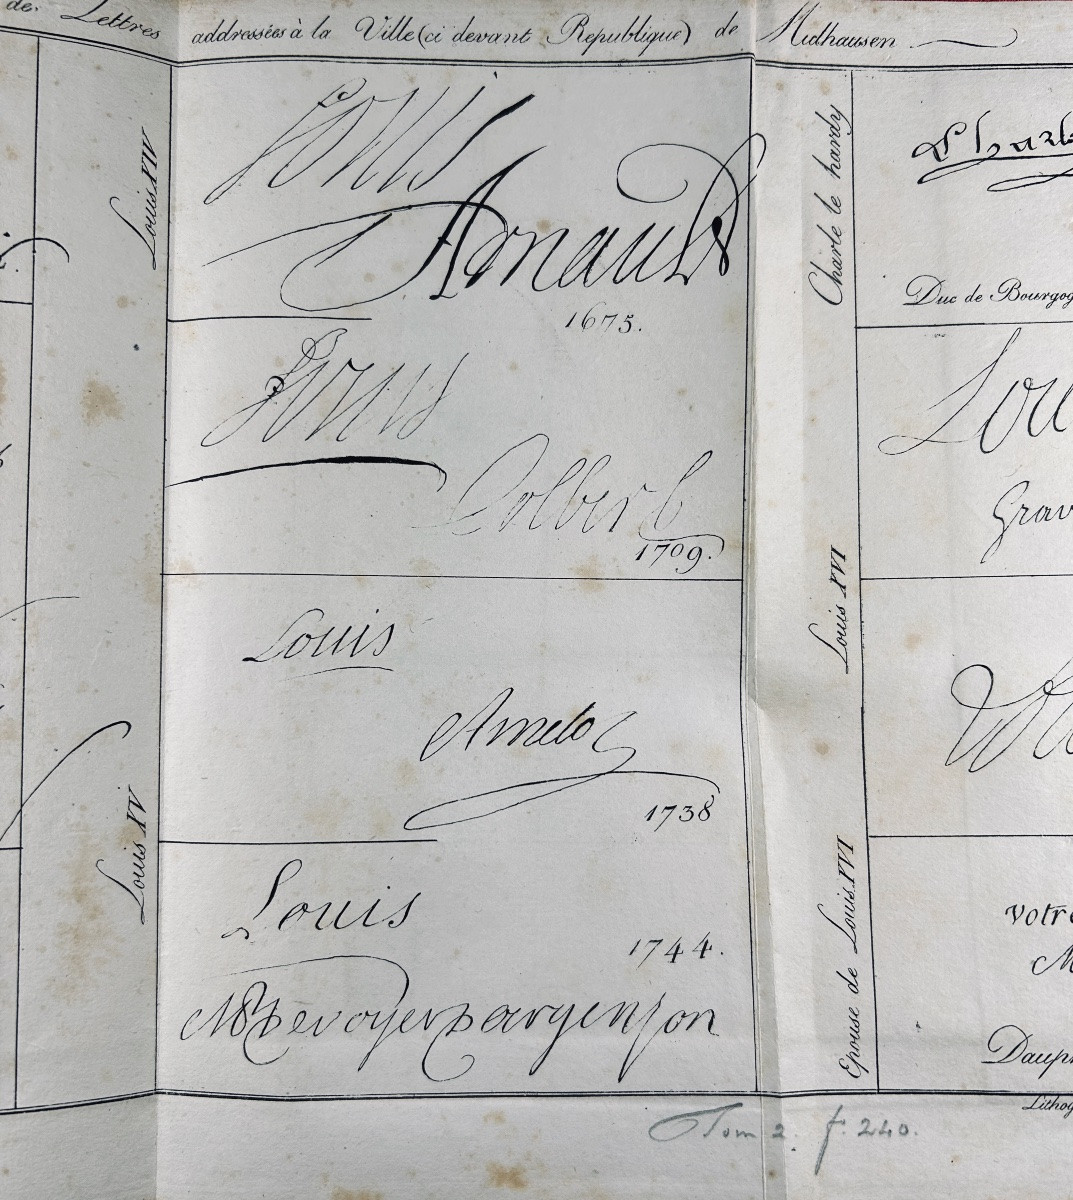 de Lettres addressées à la Ville (ci devant Republique) de Mulhausen
Louis XIV
Louis
Arnauld
1675.
Louis
Colbert
1709.
Louis XV
Louis
Amelot
1738
Louis
1744.
M P De voyer D argenson
Charle le hardy
Charle
Duc de Bourgog
Louis XVI
Lou
Grav
Epouse de Louis XVI
votre
M
Daup
Lithog
Tom 2. f. 240.